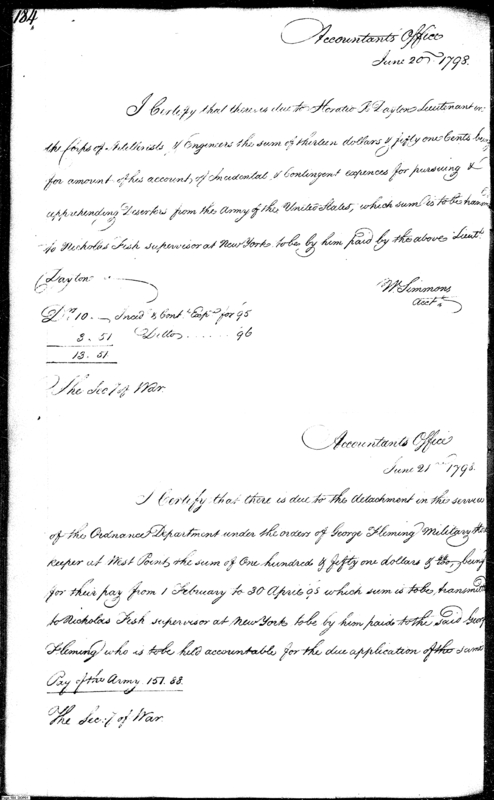 184
Accountants Office
June 20th 1798.
I Certify that there is due to Horatio R. Dayton Lieutenant in
the Corps of Artillerists & Engineers the sum of thirteen dollars & fifty one Cents being
for amount of his account, of Incidental & Contingent expences for pursuing &
apprehending Deserters from the Army of the United States, which sum is to be
to Nicholas Fish supervisor at New York to be by him paid by the above Lieut.
Dayton
Wm Simmons
Acct.
Drs 10 — Incid. & Cont. Exps for 95
3. 51 Ditto ...... 96
13. 51
The Sec:y of War.
Accountants Office
June 21 1798.
I Certify that there is due to the detachment in the service
of the Ordnance Department under the orders of George Fleming Military
keeper at West Point, the sum of One hundred & fifty one dollars & being
for their pay from 1 February to 30 April 95 which sum is to be transmitted
to Nicholas Fish supervisor at New York to be by him paid to the said George
Fleming who is to be held accountable for the due application of the same
Pay of the Army 151. 33
The Sec:y of War.